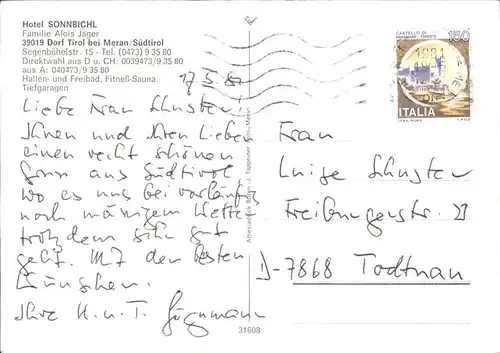 Hotel SONNBICHL
Familie Alois Jäger
39019 Dorf Tirol bei Meran/Südtirol
Segenbühelstr. 15 - Tel. (0473) 9 35 80
Direktwahl aus D u. CH: 0039473/9 35 80
aus A: 040473/9 35 80
Hallen- und Freibad, Fitneß-Sauna,
Tiefgaragen
17.5.87
Liebe Frau Schuster!
Ihnen und Ihren Lieben
einen recht schönen
Gruss aus Südtirol
wo es uns bei vorläufig
noch mäßigem Wetter
trotzdem sehr gut
geht. Mit den besten
Wünschen
Ihre H. u. T.
31608
CASTELLO DI
MIRAMARE TRIESTE
150
ITALIA
Frau
Luise Schuster
Freiburgerstr. 23
D-7868 Todtnau